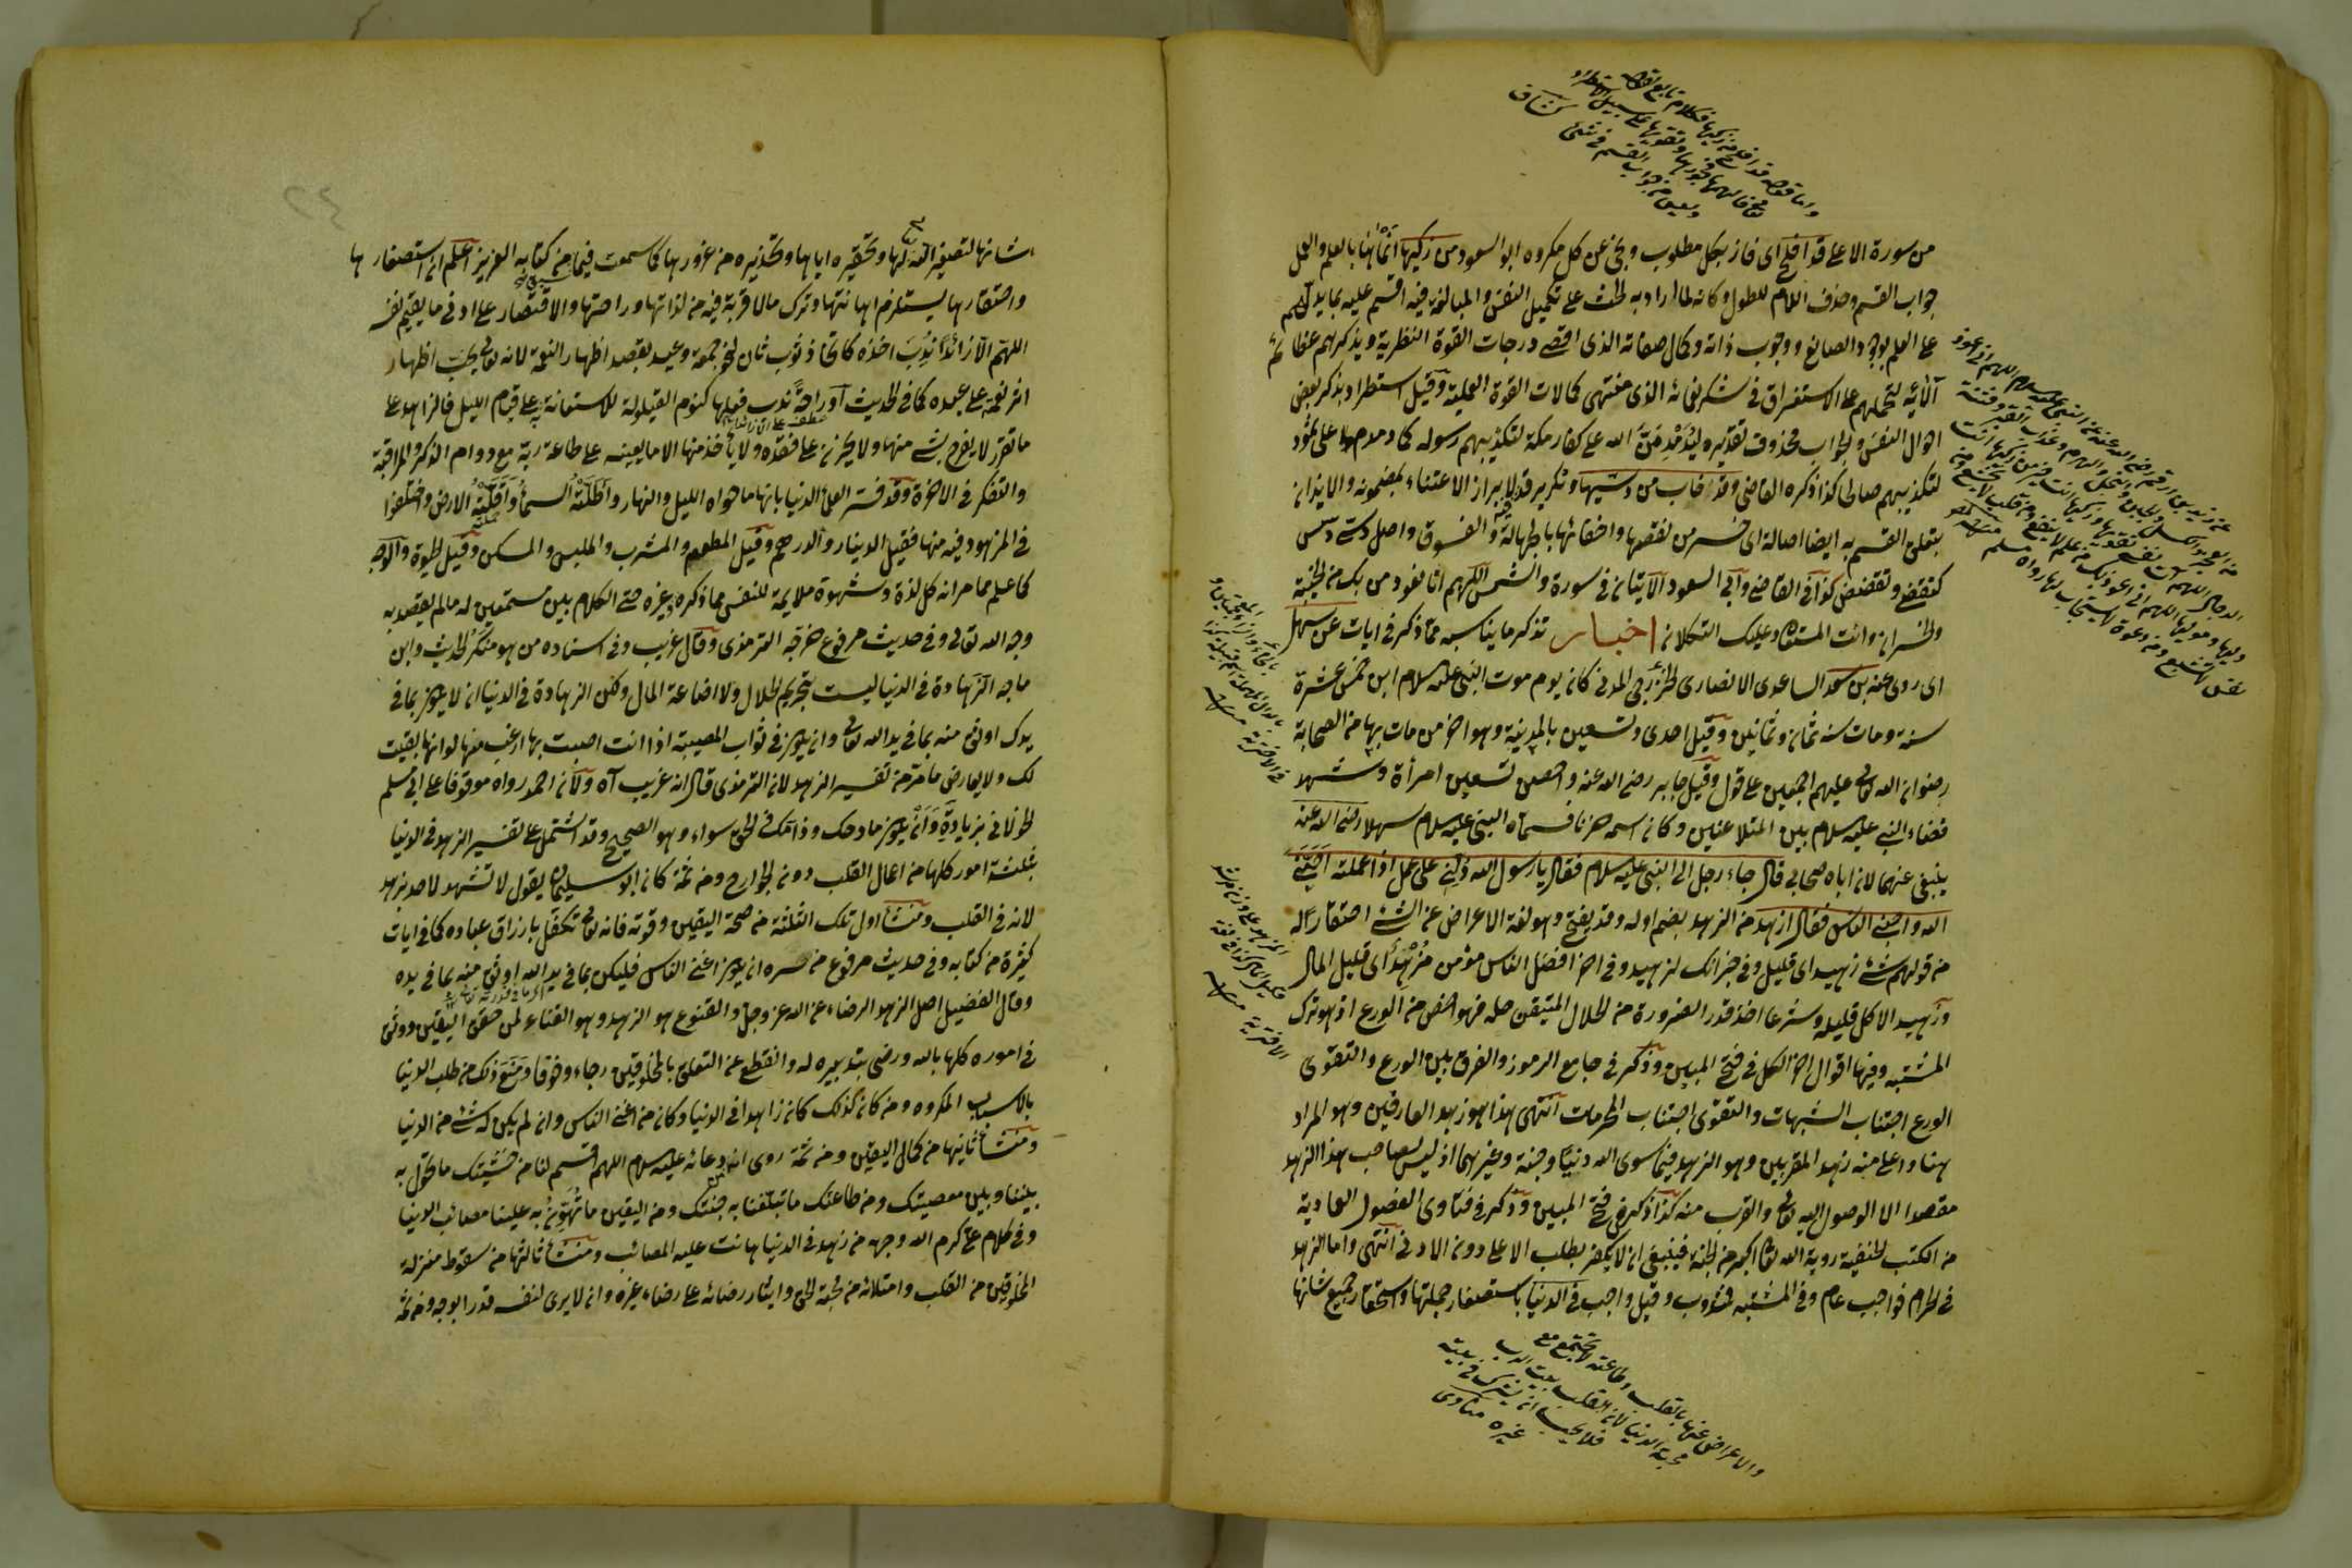 من سورة الاعلى قد افلح اى فاز بكل مطلوب ونجى عن كل مكروه ابو السعود من زكيها انماها بالعلم والعمل
جواب القسم وحذف اللام للطول وكانه لما اراد به الحث على تكميل النفس والمبالغة فيه اقسم عليه بما يدلهم
على العلم بوجود الصانع ووجوب ذاته وكمال صفاته الذى اقصى درجات القوة النظرية ويذكرهم عظائم
آلائه لتحملهم على الاستغراق فى شكر نعمائه الذى منتهى كمالات القوة العملية وقيل استطراد بذكر بعض
احوال النفس والجواب محذوف تقديره ليدمدمن الله على كفار مكة لتكذيبهم رسوله كما دمدم على ثمود
لتكذيبهم صالحا كذا ذكره القاضى وقد خاب من دسيها وتكرير قد لابراز الاعتناء بمضمونه والايذان
بتعلق القسم به ايضا اصالة اى خسر من نقصها واخفائها بالجهالة والفسوق واصل دسى دسس
كتقضى وتقضض كذا فى القاضى وابى السعود الآيتان فى سورة والشمس اللهم انا نعوذ من بك من الخيبة
والخسران وانت المستعان وعليك التكلان اخبار تذكر ما يناسبه مما ذكر فى ايات عن سهل
اى روى عنه بن سعد الساعدى الانصارى الخزرجى المدنى كان يوم موت النبى عليه سلام ابن خمس عشرة
سنة ومات سنة ثمان وثمانين وقيل احدى وتسعين بالمدينة وهو اخر من مات بها من الصحابة
رضوان الله تعالى عليهم اجمعين على قول وقيل جابر رضى الله عنه واحصن تسعين امرأة وشهد
قضاء النبى عليه سلام بين المتلاعنين وكان اسمه حزنا فسماه النبى عليه سلام سهلا رضى الله عنه
ينبغى عنهما لان اباه صحابى قال جاء رجل الى النبى عليه سلام فقال يا رسول الله دلنى على عمل اذا عملته احبنى
الله واحبنى الناس فقال ازهد من الزهد بضم اوله وقد يفتح وهو لغة الاعراض عن الشئ احتقارا له
من قولهم شئ زهيد اى قليل وفى خبر انك لزهيد وفى اخر افضل الناس مؤمن مزهد اى قليل المال
وزهيد الاكل قليله وشرعا اخذ قدر الضرورة من الحلال المتيقن حله فهو اخص من الورع اذ هو ترك
المشتبه وفيها اقوال اخر الكل فى فتح المبين وذكر فى جامع الرموز والفرق بين الورع والتقوى
الورع اجتناب الشبهات والتقوى اجتناب المحرمات انتهى هذا هو زهد العارفين وهو المراد
هنا واعلى منه زهد المقربين وهو الزهد فيما سوى الله دنيا وجنة وغيرهما اذ ليس لصاحب هذا الزهد
مقصدا الا الوصول اليه تعالى والقرب منه كذا ذكر فى فتح المبين وذكر فى فتاوى الفصول العمادية
من الكتب الحنفية روية الله تعالى اكبر من الجنة فينبغى ان لا يكفر بطلب الاعلى دون الادنى انتهى واما الزهد
فى الحرام فواجب عام وفى المشتبه فمندوب وقيل واجب فى الدنيا باستصغار جملتها واحتقار جميع شانها
والاعراض عنها بالقلب وطاعته لا تجتمع مع
محبة الدنيا لان القلب بيت الرب
فلا يحب ان يشرك فى بيته
غيره مناوى
شانها لتصغير الله لها وتحقيره اياها وتحذيره من غرورها كما سمعت فيما من كتابه العزيز اعلم ان استصغارها
واحتقارها يستلزم اهانتها وترك ما لا قربة فيه من لذاتها وراحتها والاقتصار على ادنى ما يقيم نفسه
اللهم الا زائدا ندب اخذه كاتخاذ ثوب ثان لنحو جمعة وعيد بقصد اظهار النعمة لانه تعالى يحب اظهار
اثر نعمته على عبده كما فى الحديث او راحة ندب فعلها كنوم القيلولة للاستعانة به على قيام الليل فالزاهد على
ما تقرر لا يفرح بشئ منها ولا يحزن على فقده ولا يأخذ منها الا ما يعينه على طاعة ربه مع دوام الذكر والمراقبة
والتفكر فى الاخرة وقد فسر العلماء الدنيا بانها ما حواه الليل والنهار واظلته السماء واقلته الارض واختلفوا
فى المزهود فيه منها فقيل الدينار والدرهم وقيل المطعم والمشرب والملبس والمسكن وقيل الحيوة والاوجه
كما علم مما مر انه كل لذة وشهوة ملايمة للنفس مما ذكره وغيره حتى الكلام بين مستمعين له ما لم يقصد به
وجه الله تعالى وفى حديث مرفوع خرجه الترمذى وقال غريب وفى اسناده من هو منكر الحديث وابن
ماجه الزهادة فى الدنيا ليست بتحريم الحلال ولا اضاعة المال ولكن الزهادة فى الدنيا ان لا يكون بما فى
يدك اوثق منه بما فى يد الله تعالى وان يكون فى ثواب المصيبة اذا انت اصبت بها ارغب منها لو انها بقيت
لك ولا يعارض ما مر من تفسير الزهد لان الترمذى قال انه غريب اه ولان احمد رواه موقوفا على ابى مسلم
الخولانى بزيادة وان يكون مادحك وذامك فى الحق سواء وهو الصحيح وقد اشتمل على تفسير الزهد فى الدنيا
بثلثة امور كلها من اعمال القلب دون الجوارح ومن ثمة كان ابو سليمان يقول لا تشهد لاحد بزهد
لانه فى القلب ومنشأ اول تلك الثلثة من صحة اليقين وقوته فانه تعالى تكفل بارزاق عباده كما فى ايات
كثيرة من كتابه وفى حديث مرفوع من سره ان يكون اغنى الناس فليكن بما فى يد الله اوثق منه بما فى يده
وقال الفضيل اصل الزهد الرضاء عن الله عز وجل والقنوع هو الزهد وهو الغناء لمن حقق اليقين ووثق
فى اموره كلها بالله ورضى بتدبيره له وانقطع عن التعلق بالمخلوقين رجاء وخوفا ومنع ذلك من طلب الدنيا
بالاسباب المكروه ومن كان كذلك كان زاهدا فى الدنيا وكان من اغنى الناس وان لم يكن له شئ من الدنيا
ومنشأ ثانيها من كمال اليقين ومن ثمة روى ان من دعائه عليه سلام اللهم اقسم لنا من خشيتك ما تحول به
بيننا وبين معصيتك ومن طاعتك ما تبلغنا به جنتك ومن اليقين ما تهون به علينا مصائب الدنيا
وفى كلام على كرم الله وجهه من زهد فى الدنيا هانت عليه المصائب ومنشأ ثالثها من سقوط منزلة
المخلوقين من القلب وامتلائه من محبة الحق وايثار رضائه على رضاء غيره وان لا يرى لنفسه قدرا بوجه ومن ثمة